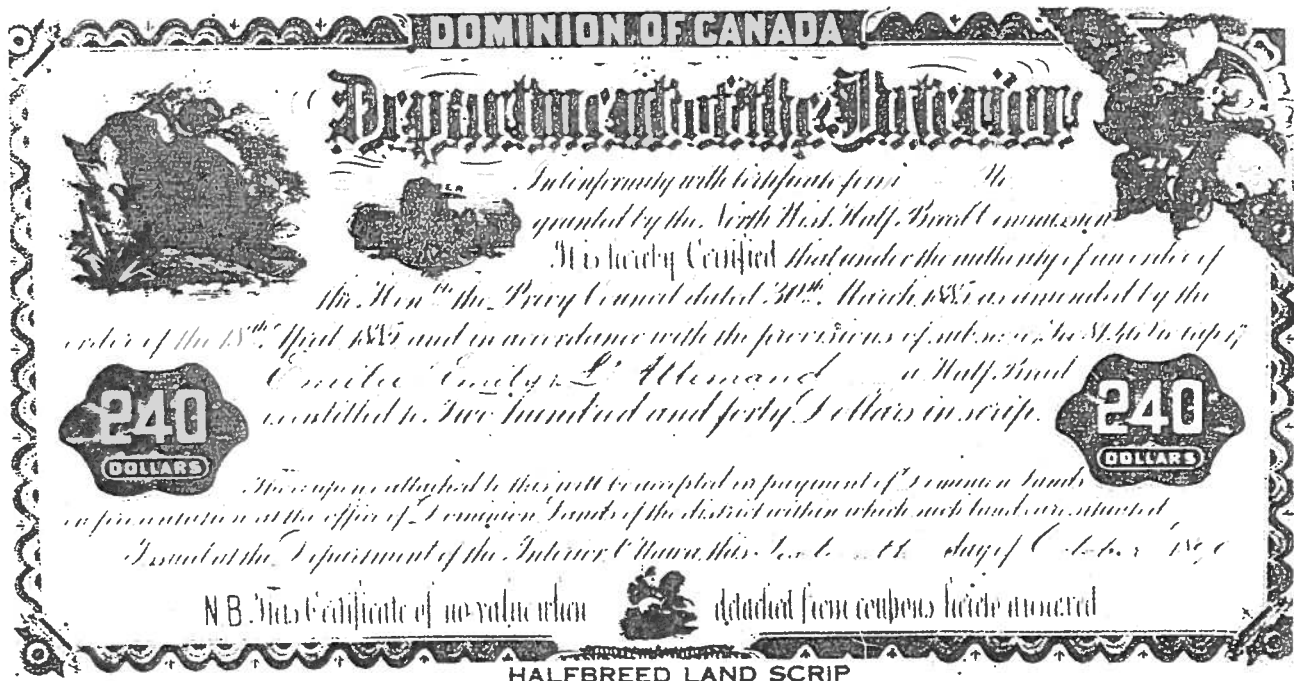 DOMINION OF CANADA
Department of the Interior
In conformity with Certificate form
granted by the North West Half Breed Commission
It is hereby Certified that under the authority of an order of
the Honble the Privy Council dated 30th March 1885 as amended by the
order of the 18th April 1885 and in accordance with the provisions of
Emilie Emily L'Allemand a Half Breed
240 DOLLARS
is entitled to Two hundred and forty Dollars in scrip.
240 DOLLARS
The coupons attached to this will be accepted in payment of Dominion Lands
on presentation at the office of Dominion Lands of the district within which such lands are situated
Issued at the Department of the Interior Ottawa, this day of October
N.B. This Certificate of no value when detached from coupons hereto annexed
HALFBREED LAND SCRIP